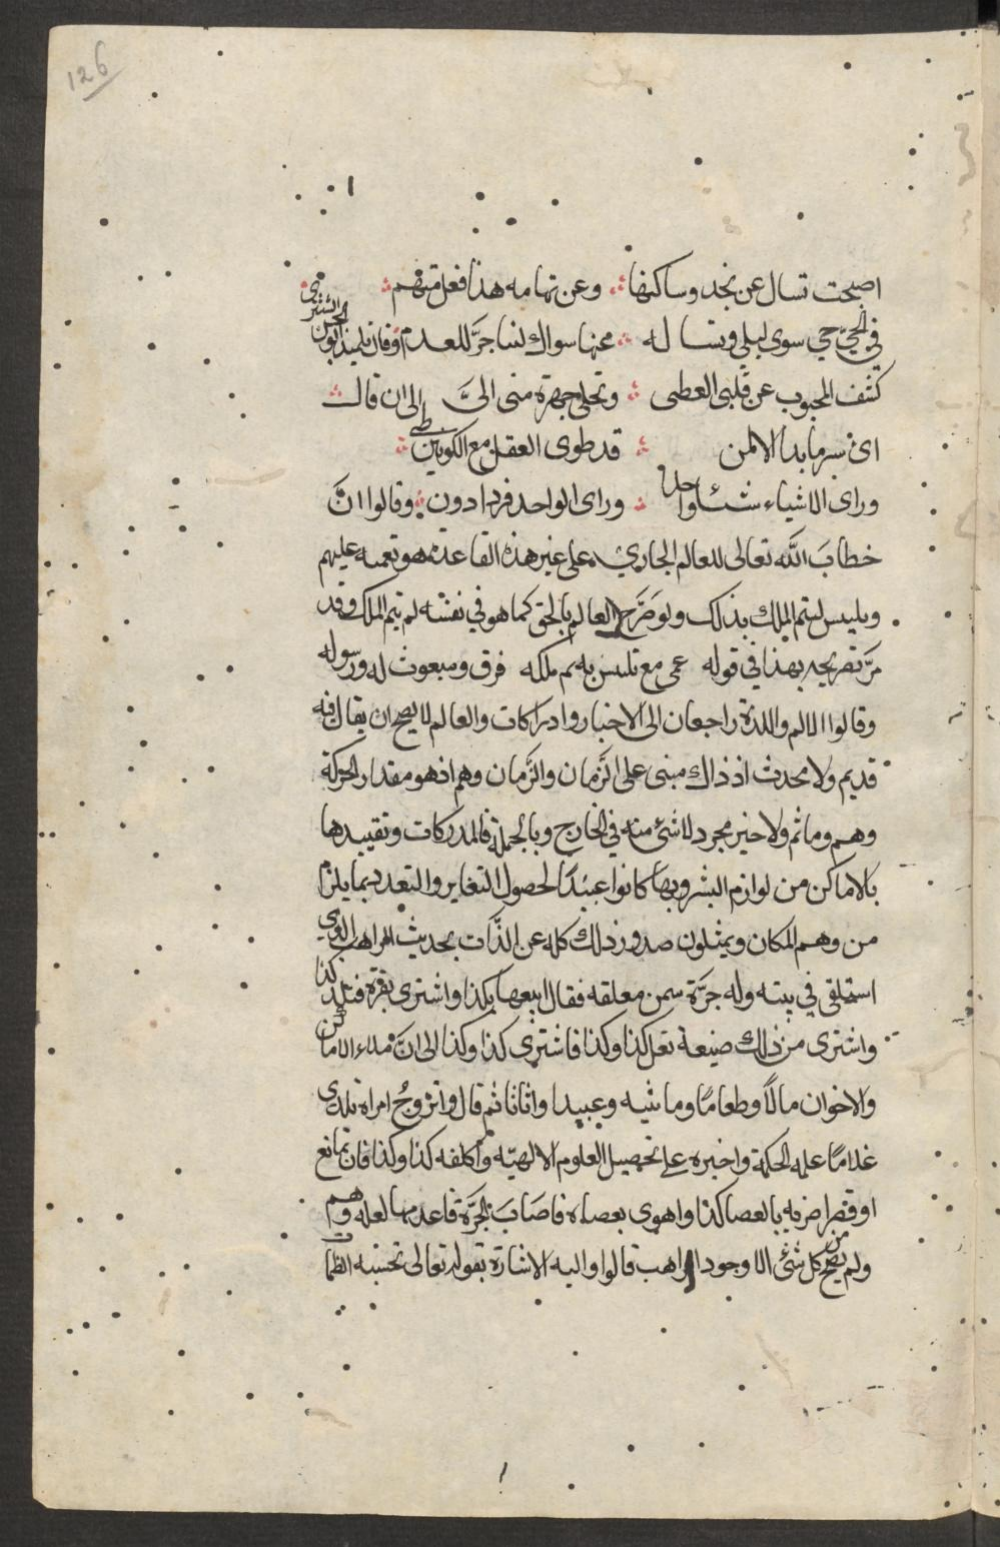 126
اصبحت تسال عن نجد وساكنها ؞ وعن تهامه هذا فعل متهم ؞
في الحيّ حي سوى ليلى وتسا له ؞ عنها سوالك لسا جرّ للعدم وقال تلميذ ابو الحسن الششتري
كشف المحبوب عن قلبى العطى ؞ وتجلى جهرة منى الىّ الى ان قال ؞
اى سر ما بدا الا لمن ؞ قد طوى العقل مع الكونين طى ؞
وراى الاشياء شئا واحدا ؞ وراى الواحد فردا دون ؞ وقالوا انّ
خطابَ اللّه تعالى للعالم الجاري على غير هذه القاعدة هو تعميه عليهم
وبلبس ليتم الملك بذلك ولو صَرَّح العالم بالحق كما هو في نفسه لم يتم الملك وقد
مرّ تصريحه بهذا في قوله عمى مع تلبس به تم ملكه فرق ومبعوث له ورسوله
وقالوا الالم واللذة راجعان الى الاخبار وادراكات والعالم لا يصح ان يقال فيه
قديم ولا محدث اذ ذاك مبنى على الزّمان والزّمان وهم اذ هو مقدار الحركة
وهم وما ثم ولا خبر مجرد لا شئ منه في الخارج وبالجملة فالمدركات وتقييدها
بالاماكن من لوازم البشر وبها كانوا عبيدًا لحصول التغاير والتعدد بما يلزم
من وهم المكان ويمثلون صدور ذلك كله عن الذّات بحديث الراهب الذي
استلقى في بيته وله جرّة سمن معلقه فقال ابيعها بكذا واشترى بقرة فتلد كذا
واشترى من ذلك ضيعة تغل كذا وكذا فاشترى كذا وكذا الى انّ ملاء الاماكن
والاخوان مالاً وطعامًا وماشيه وعبيدا واثاثا ثم قال واتزوجُ امراة تلد لى
غلامًا علمه الحكمة واخبره على تحصيل العلوم الالهيّه واكلفه كذا وكذا فان تمانع
او قصر اضربه بالعصا كذا واهوى بعصاه فاصَابَ الجَرَّة فاعدمها لعله وهم
ولم يصح من كل شئ الا وجود الواهب قالوا واليه الاشارة بقوله تعالى تحسبه الظما